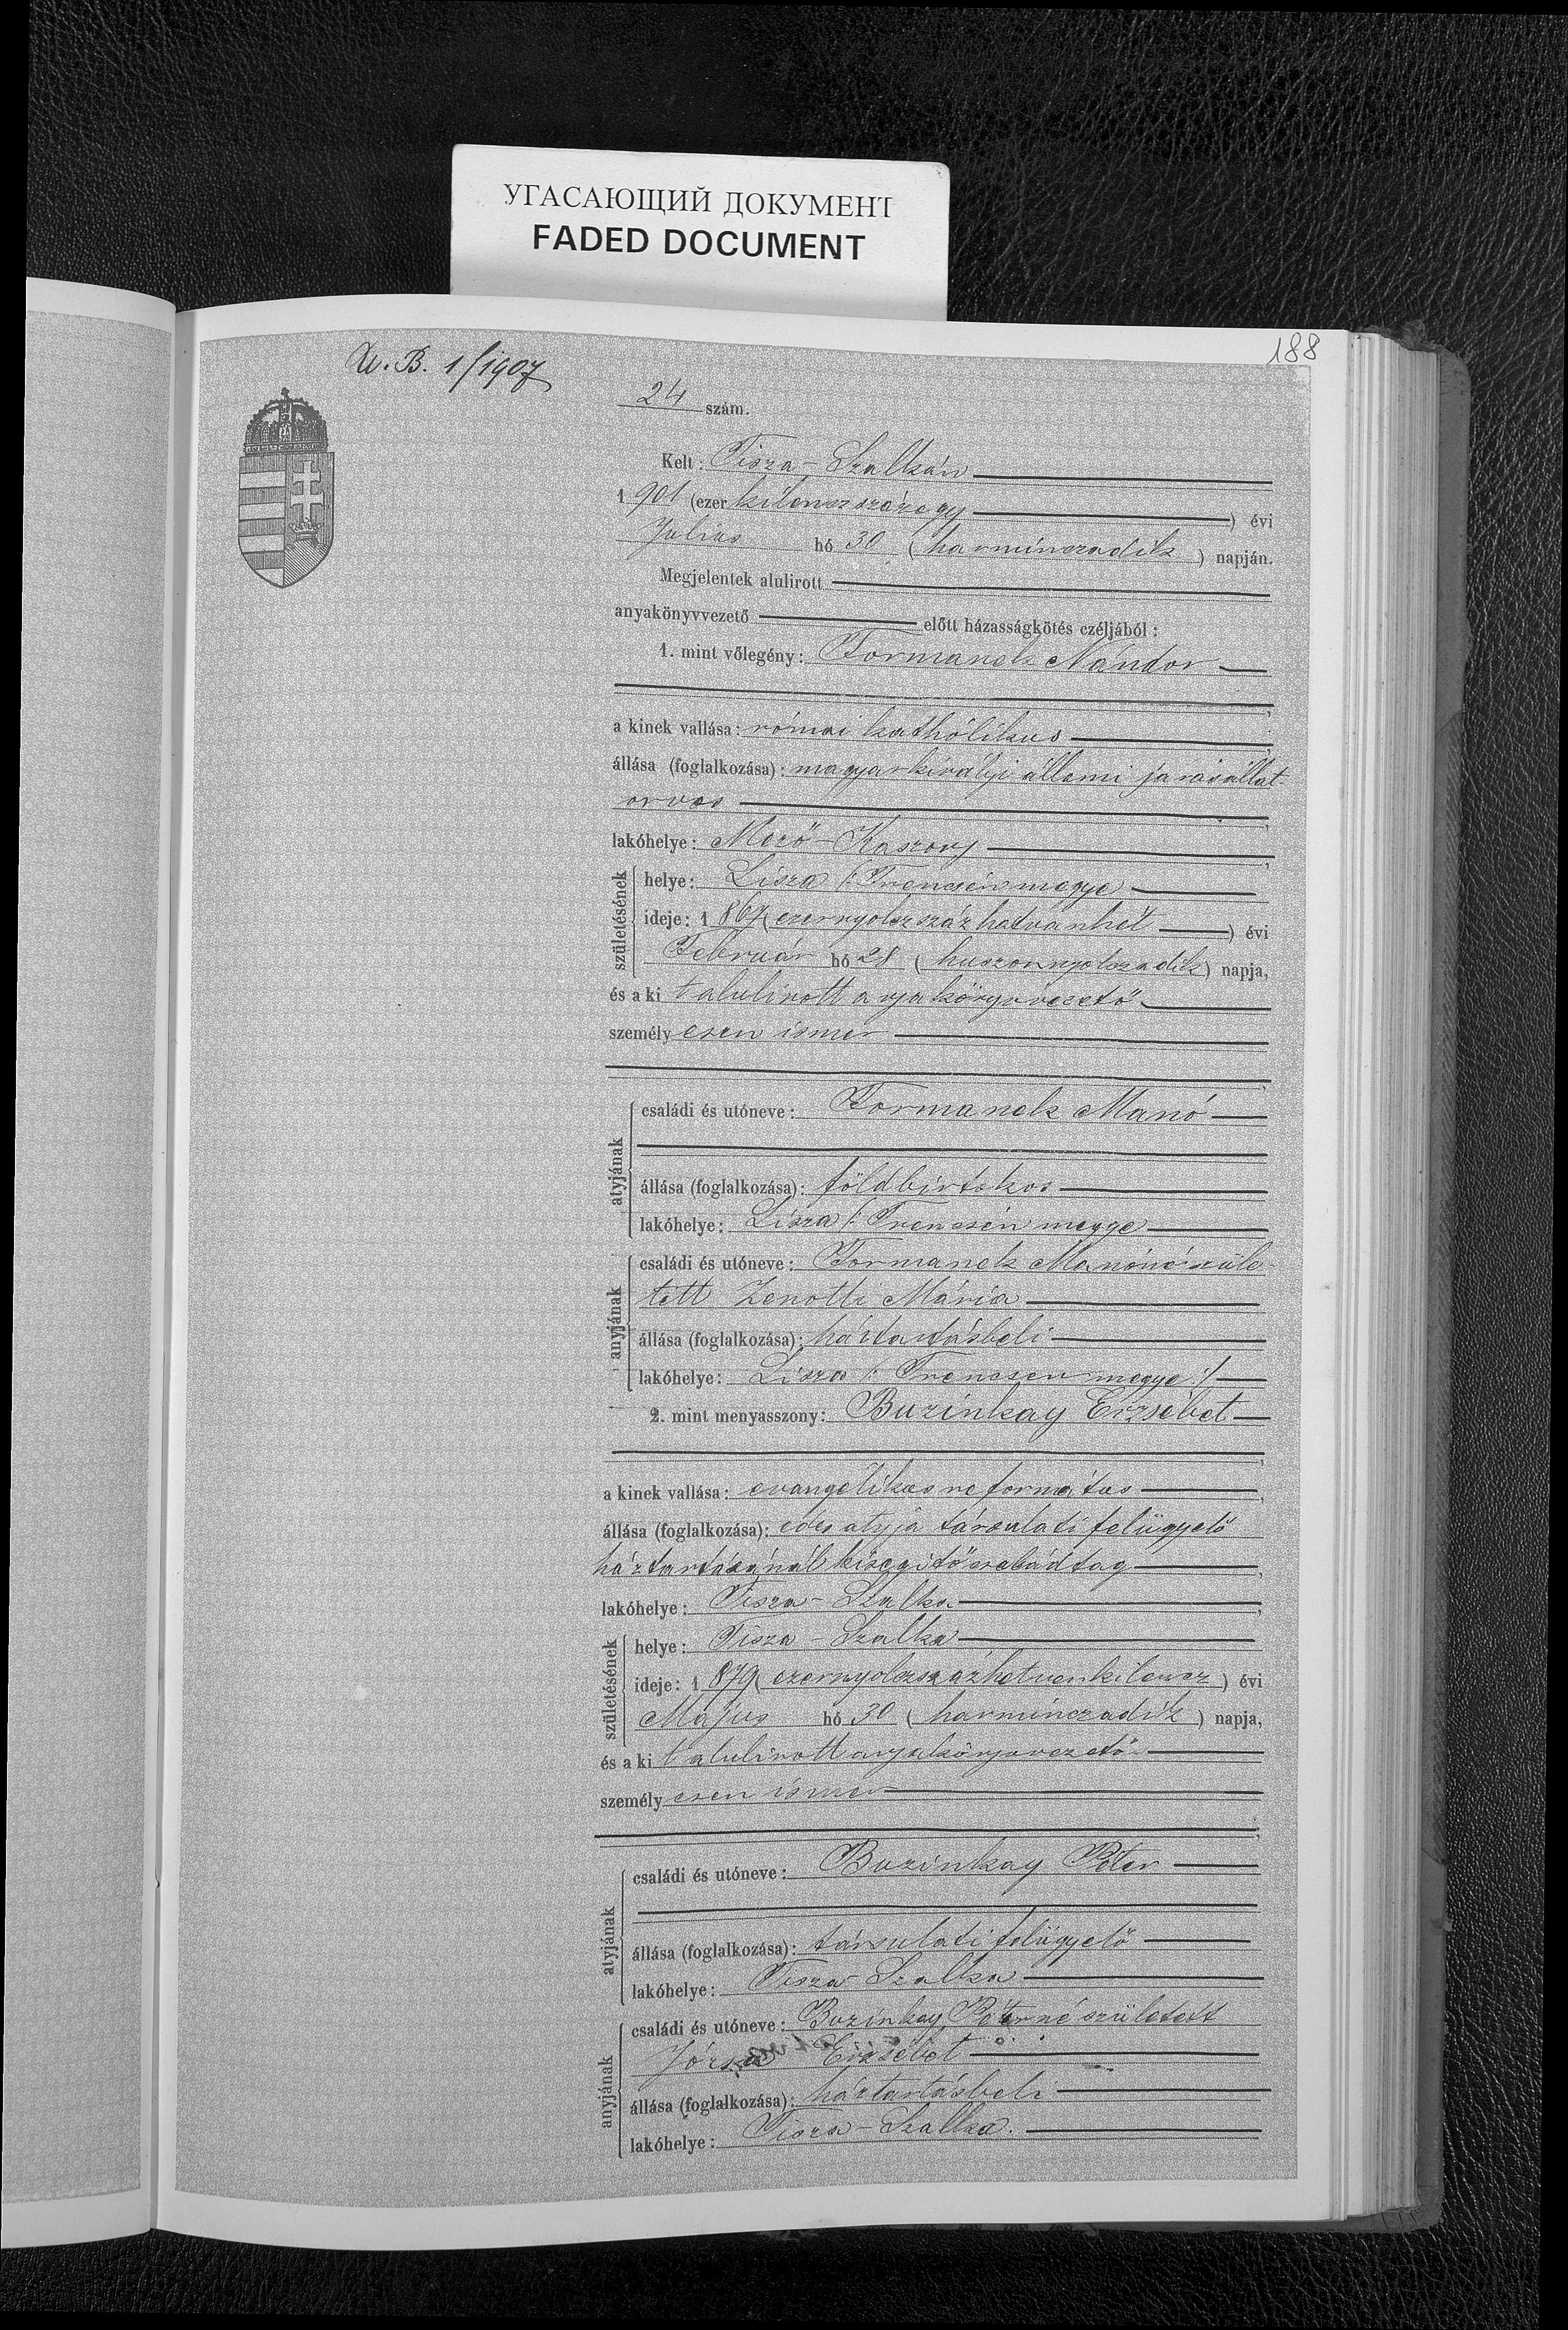 УГАСАЮЩИЙ ДОКУМЕНТ
FADED DOCUMENT
188
U. B. 1/1907
24 szám.
Kelt: Tisza-Szalkán
1901 (ezer kilenczszázegy) évi
Julius hó 30 (harminczadik) napján.
Megjelentek alulirott
anyakönyvvezető előtt házasságkötés czéljából:
1. mint vőlegény: Formanek Nándor
a kinek vallása: római katholikus
állása (foglalkozása): magyar királyi állami járásállat-
orvos
lakóhelye: Mező-Kaszony
születésének
helye: Lisza /: Trencsén megye
ideje: 1867 (ezernyolczszázhatvanhét) évi
Február hó 28 (huszonnyolczadik) napja,
és a kit alulirott anyakönyvvezető
személyesen ismer
atyjának
családi és utóneve: Formanek Manó
állása (foglalkozása): földbirtokos
lakóhelye: Lisza /: Trencsén megye
anyjának
családi és utóneve: Formanek Manóné szüle-
tett Zenotti Mária
állása (foglalkozása): háztartásbeli
lakóhelye: Lisza /: Trencsen megye :/
2. mint menyasszony: Buzinkay Erzsébet
a kinek vallása: evangélikus református
állása (foglalkozása): édes atyja társulati felügyelő
háztartásánál kisegitő családtag
lakóhelye: Tisza-Szalka
születésének
helye: Tisza-Szalka
ideje: 1879 (ezernyolczszázhetvenkilencz) évi
Május hó 30 (harminczadik) napja,
és a kit alulirott anyakönyvvezető
személyesen ismer
atyjának
családi és utóneve: Buzinkay Péter
állása (foglalkozása): társulati felügyelő
lakóhelye: Tisza-Szalka
anyjának
családi és utóneve: Buzinkay Péterné született
Józsa Erzsébet
állása (foglalkozása): háztartásbeli
lakóhelye: Tisza-Szalka.